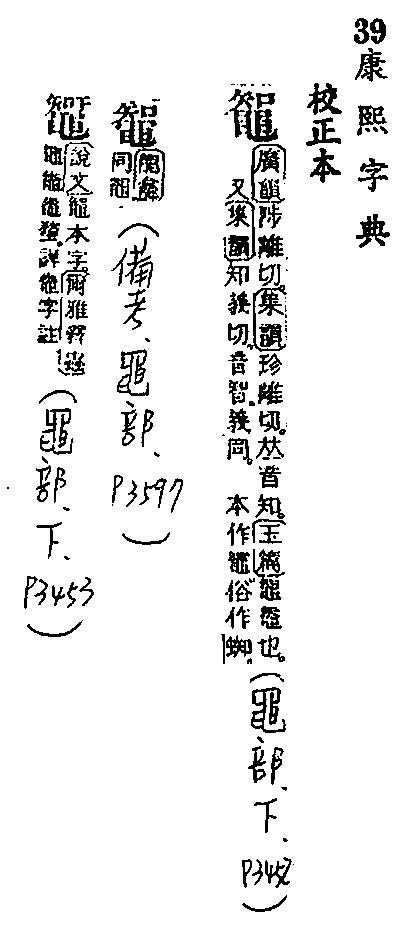 39康熙字典
校正本
鼅
廣韻陟離切。集韻珍離切。𠀤音知。玉篇鼅鼄也。
又集韻知義切。音智。義同。 本作 俗作蜘。
(黽部、下、P3452)
同鼅
(備考、黽部、P3597)
說文鼅本字。爾雅釋蟲
詳鼅字註
(黽部、下、P3453)